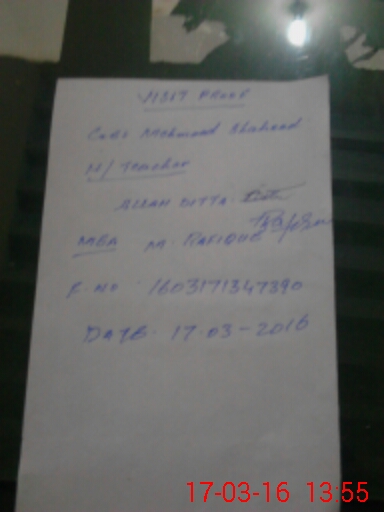 VISIT PROOF
Case Mehmood Shaheed
H/Teacher
ALLAH DITTA
MEA M. RAFIQUE
R. NO 1603171347390
DATE. 17.03-2016
17-03-16 13:55